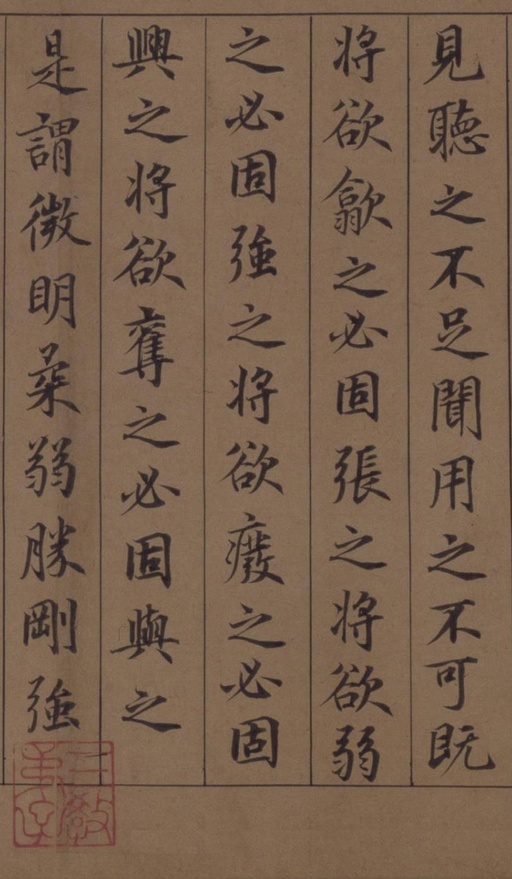 見聽之不足聞用之不可既
将欲歙之必固張之将欲弱
之必固強之将欲癈之必固
興之将欲奪之必固與之
是謂微明柔弱勝剛強